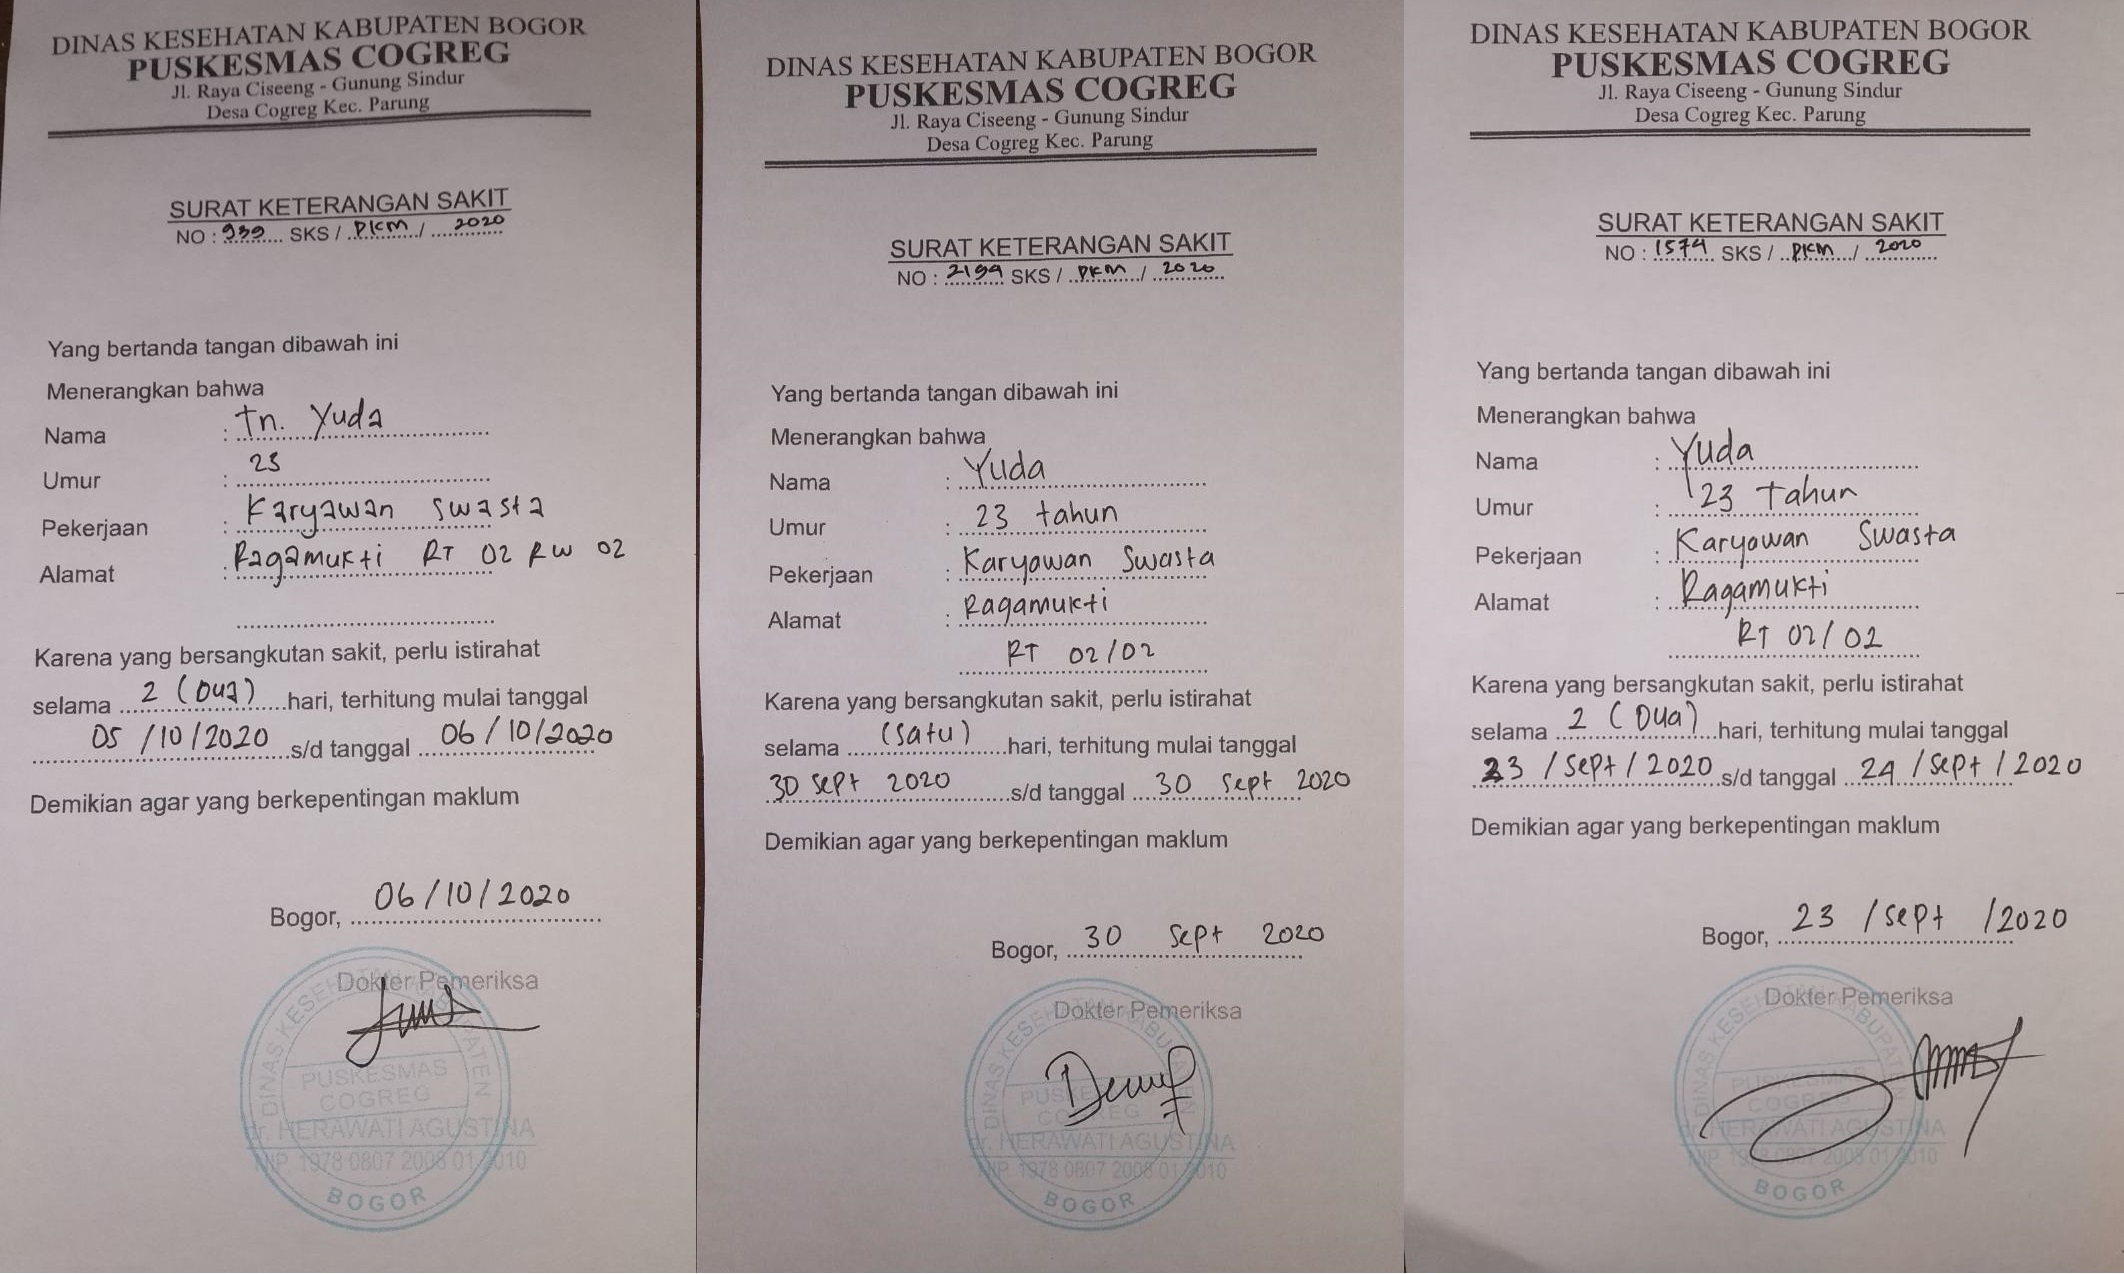 DINAS KESEHATAN KABUPATEN BOGOR
PUSKESMAS COGREG
Jl. Raya Ciseeng - Gunung Sindur
Desa Cogreg Kec. Parung
SURAT KETERANGAN SAKIT
NO : 939 SKS / PKM / 2020
Yang bertanda tangan dibawah ini
Menerangkan bahwa
Nama : Tn. Yuda
Umur : 23
Pekerjaan : Karyawan Swasta
Alamat : Ragamukti RT 02 RW 02
Karena yang bersangkutan sakit, perlu istirahat
selama 2 (Dua) hari, terhitung mulai tanggal
05 / 10 / 2020 s/d tanggal 06 / 10 / 2020
Demikian agar yang berkepentingan maklum
Bogor, 06 / 10 / 2020
Dokter Pemeriksa
DINAS KESEHATAN KABUPATEN
PUSKESMAS
COGREG
dr. HERAWATI AGUSTINA
NIP. 1978 0807 2008 01 2010
BOGOR
DINAS KESEHATAN KABUPATEN BOGOR
PUSKESMAS COGREG
Jl. Raya Ciseeng - Gunung Sindur
Desa Cogreg Kec. Parung
SURAT KETERANGAN SAKIT
NO : 2194 SKS / PKM / 2020
Yang bertanda tangan dibawah ini
Menerangkan bahwa
Nama : Yuda
Umur : 23 tahun
Pekerjaan : Karyawan Swasta
Alamat : Ragamukti
RT 02/02
Karena yang bersangkutan sakit, perlu istirahat
selama (Satu) hari, terhitung mulai tanggal
30 Sept 2020 s/d tanggal 30 Sept 2020
Demikian agar yang berkepentingan maklum
Bogor, 30 Sept 2020
Dokter Pemeriksa
DINAS KESEHATAN KABUPATEN
PUSKESMAS
COGREG
dr. HERAWATI AGUSTINA
NIP. 1978 0807 2008 01 2010
BOGOR
DINAS KESEHATAN KABUPATEN BOGOR
PUSKESMAS COGREG
Jl. Raya Ciseeng - Gunung Sindur
Desa Cogreg Kec. Parung
SURAT KETERANGAN SAKIT
NO : 1574 SKS / PKM / 2020
Yang bertanda tangan dibawah ini
Menerangkan bahwa
Nama : Yuda
Umur : 23 Tahun
Pekerjaan : Karyawan Swasta
Alamat : Ragamukti
RT 02/02
Karena yang bersangkutan sakit, perlu istirahat
selama 2 (Dua) hari, terhitung mulai tanggal
23 / Sept / 2020 s/d tanggal 24 / Sept / 2020
Demikian agar yang berkepentingan maklum
Bogor, 23 / Sept / 2020
Dokter Pemeriksa
DINAS KESEHATAN KABUPATEN
PUSKESMAS
COGREG
HERAWATI AGUSTINA
NIP 1978 0807 2008 01 2010
BOGOR